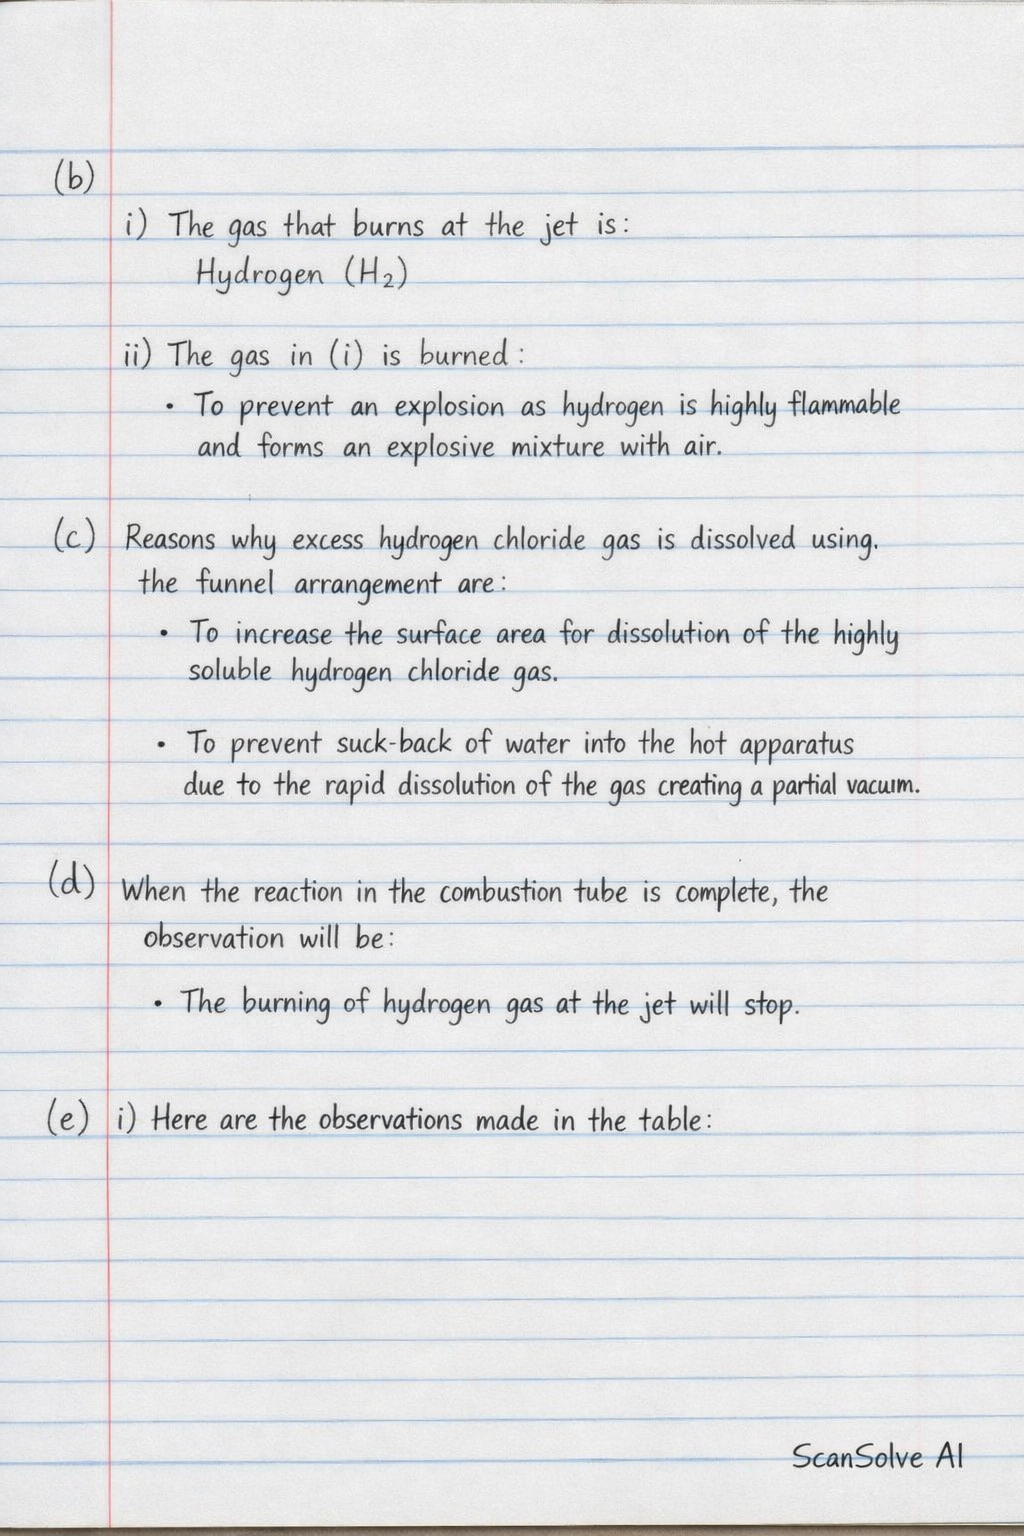 (b)
i) The gas that burns at the jet is:
Hydrogen (H₂)
ii) The gas in (i) is burned:
• To prevent an explosion as hydrogen is highly flammable
and forms an explosive mixture with air.
(c) Reasons why excess hydrogen chloride gas is dissolved using.
the funnel arrangement are:
• To increase the surface area for dissolution of the highly
soluble hydrogen chloride gas.
• To prevent suck-back of water into the hot apparatus
due to the rapid dissolution of the gas creating a partial vacuum.
(d) When the reaction in the combustion tube is complete, the
observation will be:
• The burning of hydrogen gas at the jet will stop.
(e) i) Here are the observations made in the table:
ScanSolve AI